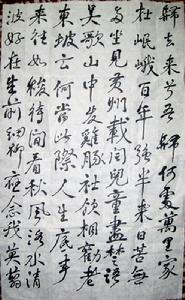 歸去来兮吾歸何處萬里家
在岷峨百年强半来日苦無
多坐見黄州載閏兒童盡楚語
吴歌山中友雞豚社飲相勸老
東坡云何當此際人生底事
来往如梭待閒看秋風洛水清
波好在堂前細柳應念我莫剪